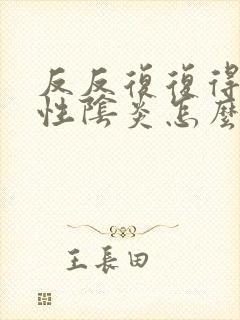 反反復復得
性陰炎怎麼
王長田